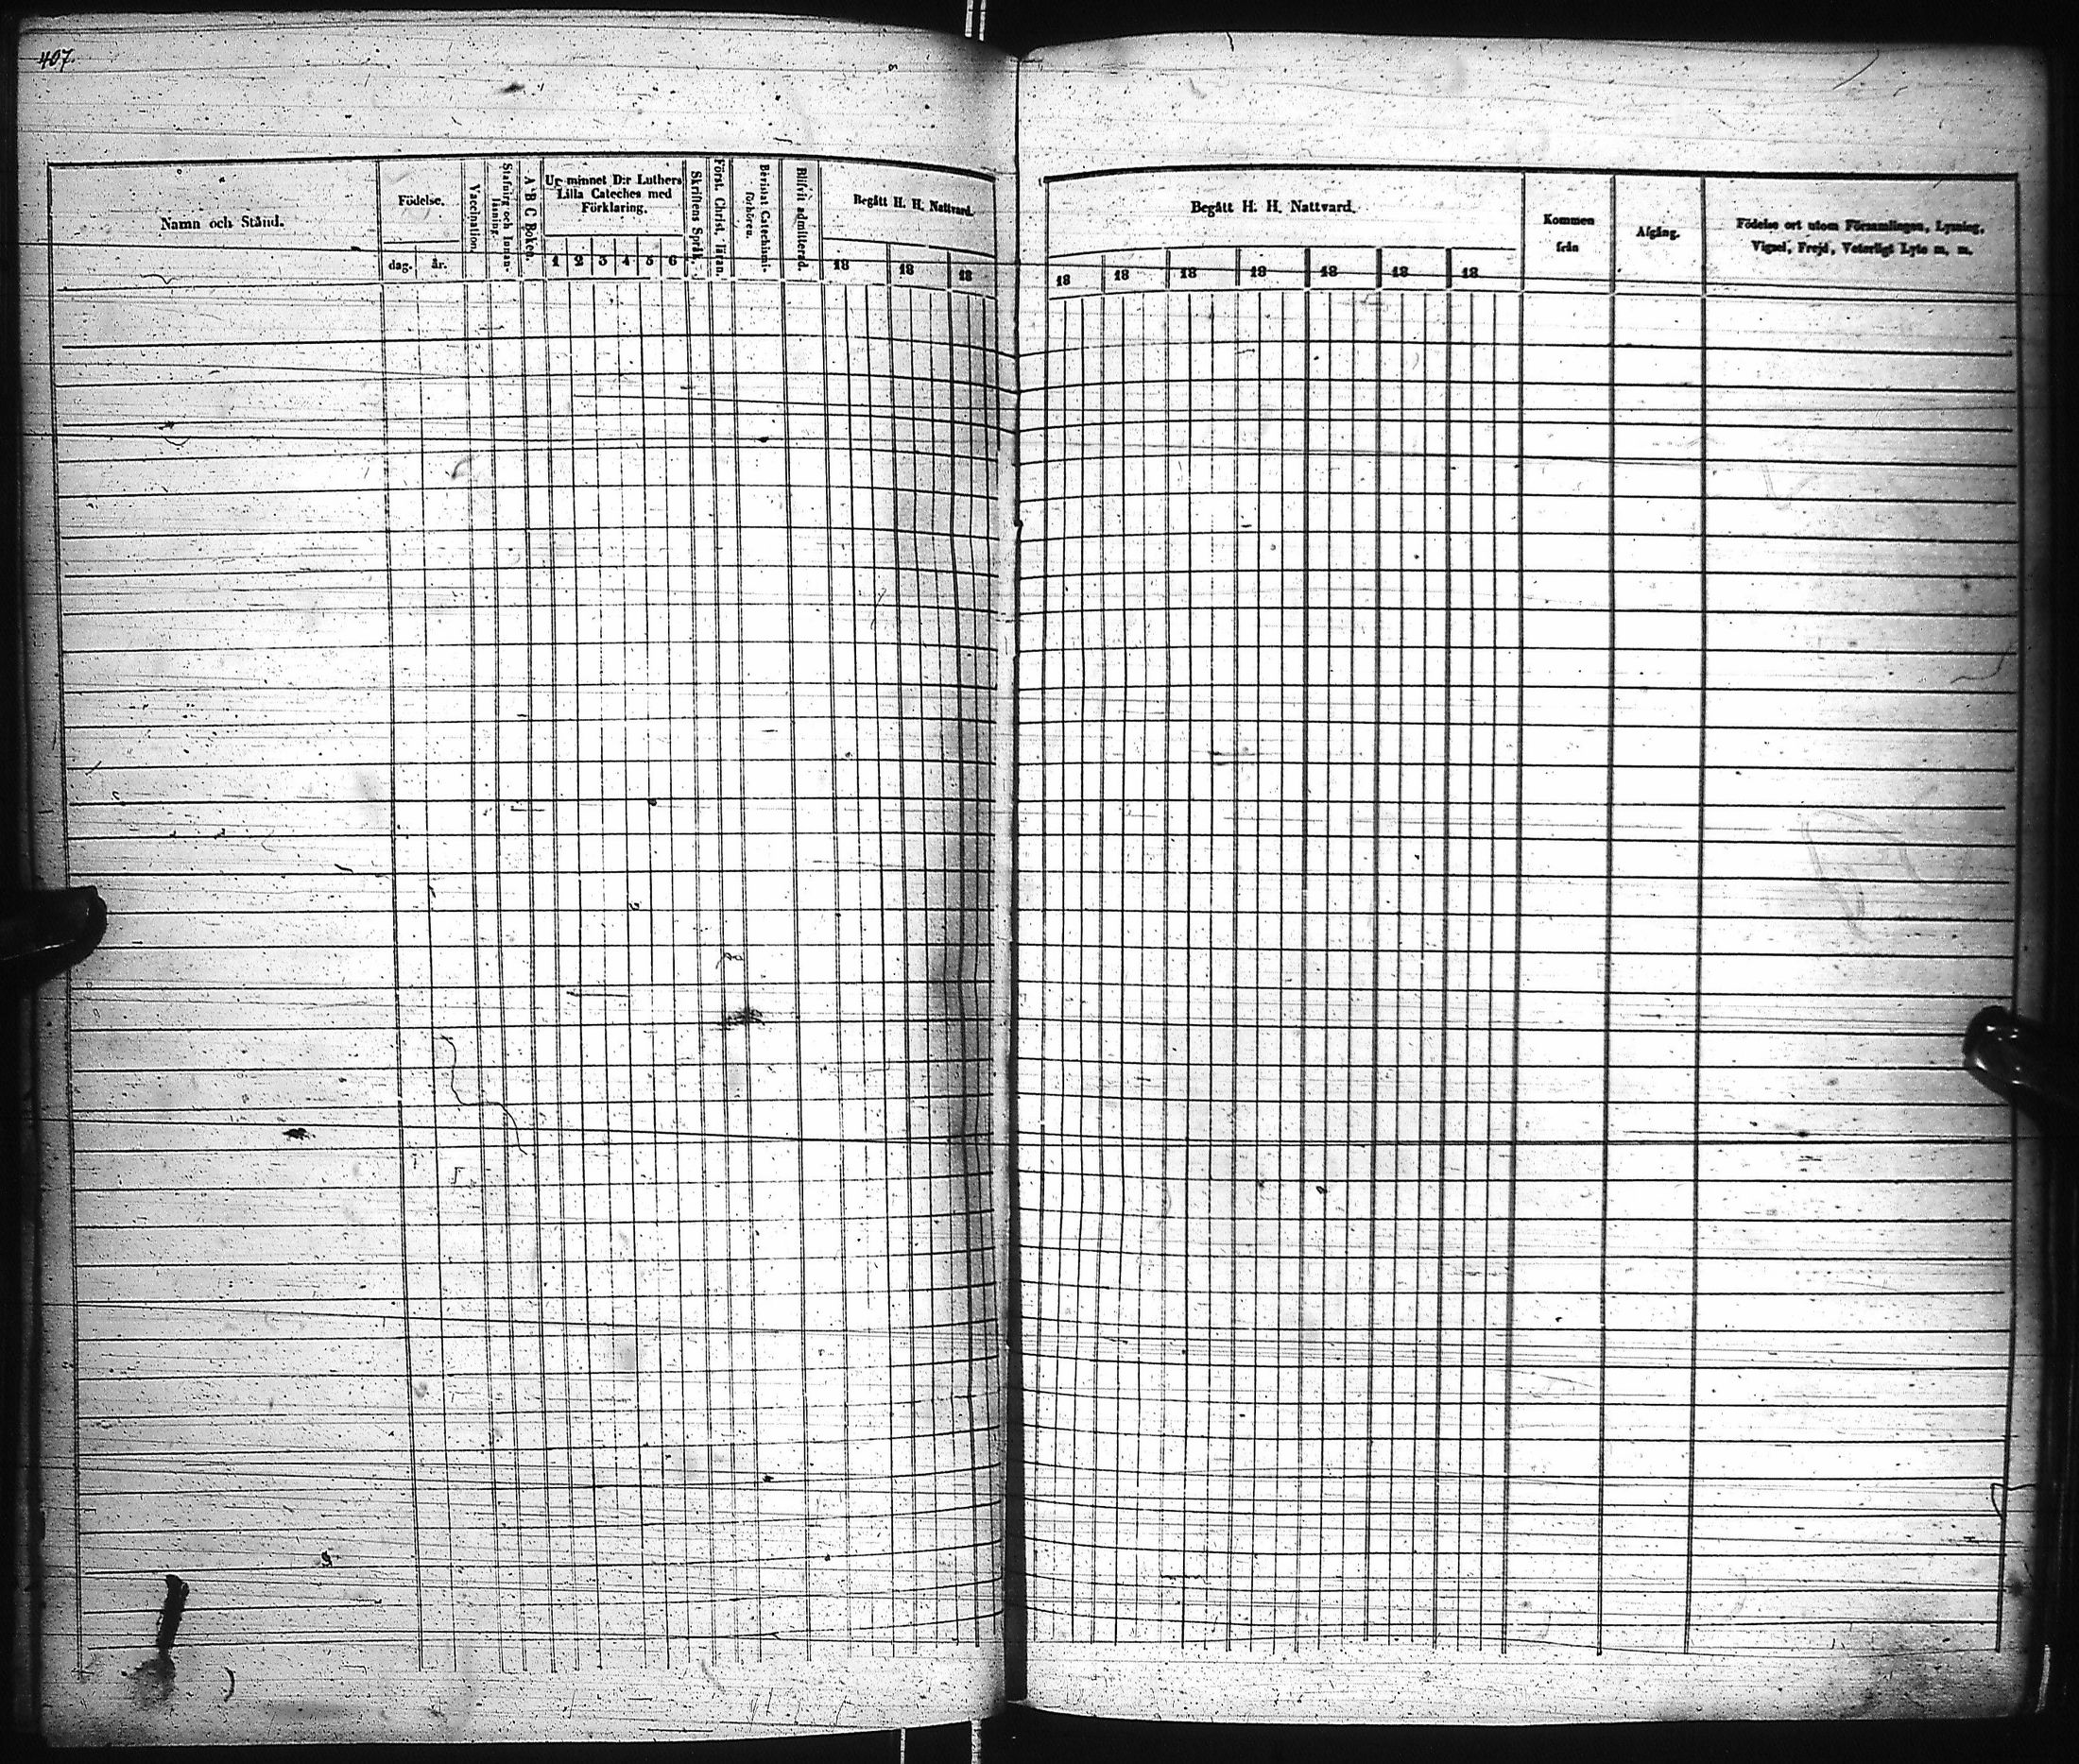 407.
Namn och Stånd.
Födelse.
dag. år.
Vaccination.
Stafning och Innan-
läsning.
A B C Boken.
Ur minnet D:r Luthers
Lilla Cateches med
Förklaring.
1 2 3 4 5 6
Skriftens Språk.
Först. Christ. Läran.
Bevistat Catechismi-
förhören.
Blifvit admitterad.
Begått H. H. Nattvard.
18 18 18
Begått H. H. Nattvard.
18 18 18 18 18 18 18
Kommen
från
Afgång.
Födelse ort utom Församlingen, Lysning,
Vigsel, Frejd, Veterligt Lyte m. m.